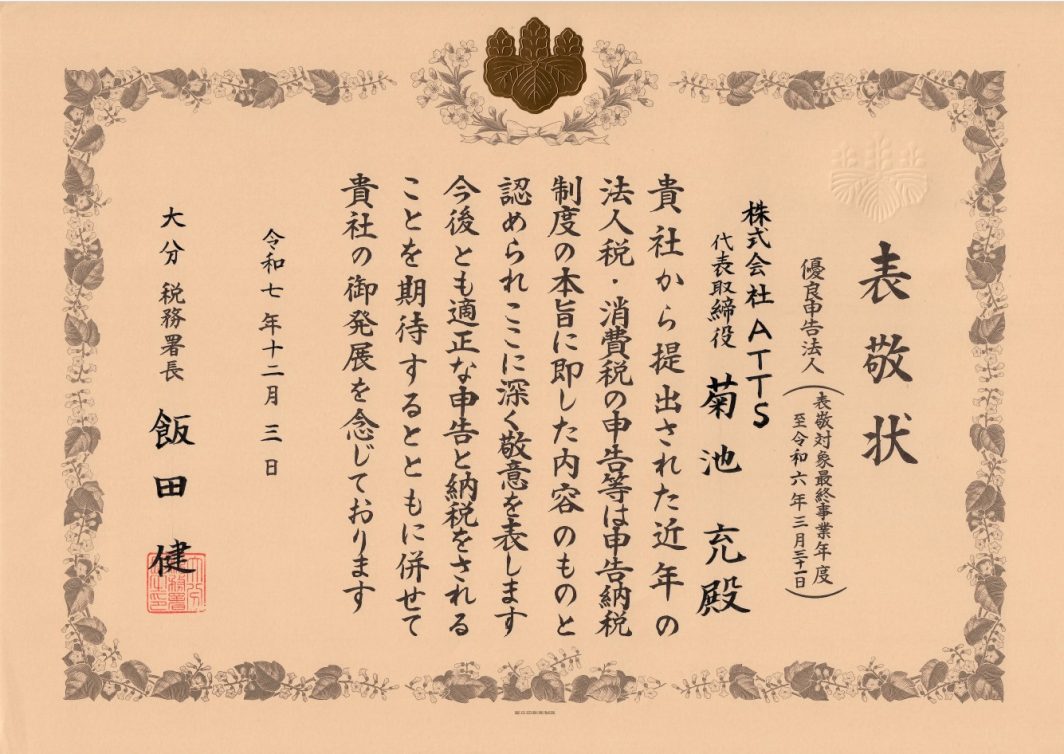 表敬状
優良申告法人
（表敬対象最終事業年度
至令和六年三月三十一日）
株式会社ATTS
代表取締役 菊池 充殿
貴社から提出された近年の
法人税・消費税の申告等は申告納税
制度の本旨に即した内容のものと
認められここに深く敬意を表します
今後とも適正な申告と納税をされる
ことを期待するとともに併せて
貴社の御発展を念じております
令和七年十二月三日
大分税務署長 飯田 健